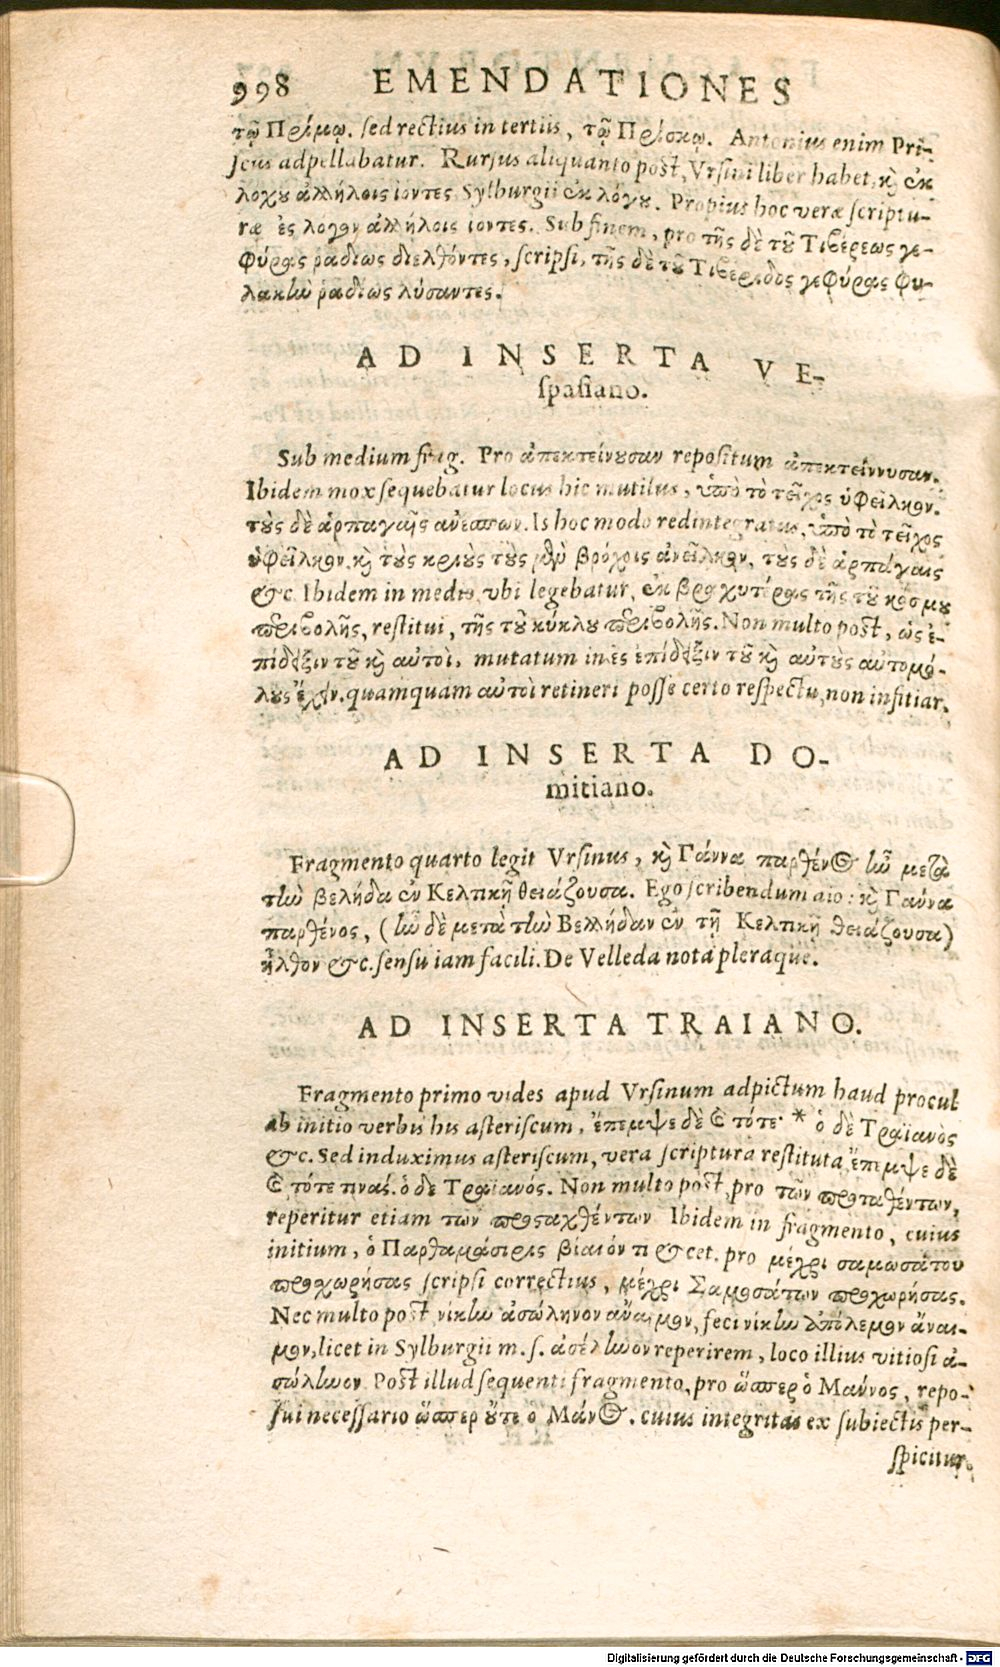 998 EMENDATIONES
τῷ Πρίμῳ. sed rectius in tertiis, τῷ Πρίσκῳ. Antonius enim Pri-
scus adpellabatur. Rursus aliquanto post, Vrsini liber habet, κὶ ἐκ
λόχου ἀλλήλοις ἰόντες Sylburgii ἐκ λόγου. Propius hoc veræ scriptu-
ræ ἐς λόγον ἀλλήλοις ἰόντες. Sub finem, pro τῆς δὲ τοῦ Τιβέρεως γε-
φύρας ῥαδίως διελθόντες, scripsi, τῆς δὲ τοῦ Τιβέριδος γεφύρας φυ-
λακὴν ῥαδίως λύσαντες.
AD INSERTA VE-
spasiano.
Sub medium frag. Pro ἀπεκτείνουσαν repositum ἀπεκτείννυσαν.
Ibidem mox sequebatur locus hic mutilus, ὑπὸ τὸ τεῖχος ὑφεῖλκον.
τοὺς δὲ ἁρπαγαῖς ἀνέσπων. Is hoc modo redintegratus, ὑπὸ τὸ τεῖχος
ὑφεῖλκον. κὶ τοὺς κριοὺς τοὺς μὲν βρόχοις ἀνεῖλκον, τοὺς δὲ ἁρπάγαις
&c. Ibidem in medio, vbi legebatur, ἐκ βραχυτέρας τῆς τοῦ κόσμου
περιβολῆς, restitui, τῆς τοῦ κύκλου περιβολῆς. Non multo post, ὡς ἐ-
πίδειξιν τοῦ κὶ αὐτοὶ, mutatum in ἐς ἐπίδειξιν τοῦ κὶ αὐτοὺς αὐτομό-
λους ἔχειν. quamquam αὐτοὶ retineri posse certo respectu, non infitiar.
AD INSERTA DO-
mitiano.
Fragmento quarto legit Vrsinus, κὶ Γάννα παρθένος ἦν μετὰ
τὴν βελήδα ἐν Κελτικῇ θειάζουσα. Ego scribendum aio: κὶ Γαύνα
παρθένος, (ἦν δὲ μετὰ τὴν Βελλήδαν ἐν τῇ Κελτικῇ θειάζουσα)
ἦλθον &c. sensu iam facili. De Velleda nota pleraque.
AD INSERTA TRAIANO.
Fragmento primo vides apud Vrsinum adpictum haud procul
ab initio verbis his asteriscum, ἔπεμψε δὲ & τότε· * ὁ δὲ Τραϊανὸς
&c. Sed induximus asteriscum, vera scriptura restituta, ἔπεμψε δὲ
& τότε τινάς. ὁ δὲ Τραϊανός. Non multo post, pro τῶν προταθέντων,
reperitur etiam τῶν προσαχθέντων Ibidem in fragmento, cuius
initium, ὁ Παρθαμάσιρις βίαιόν τι &cet. pro μέχρι σαμωσάτου
προχωρήσας scripsi correctius, μέχρι Σαμοσάτων προχωρήσας.
Nec multo post νίκην ἀσώληνον ἄναιμον, feci νίκην ἀπόλεμον ἄναι-
μον, licet in Sylburgii m. s. ἀσέληνον reperirem, loco illius vitiosi ἀ-
σώληνον. Post illud sequenti fragmento, pro ὥσπερ ὁ Μαῦνος, repo-
sui necessario ὥσπερ οὔτε ὁ Μάνος. cuius integritas ex subiectis per-
spicitur.
Digitalisierung gefördert durch die Deutsche Forschungsgemeinschaft - DFG